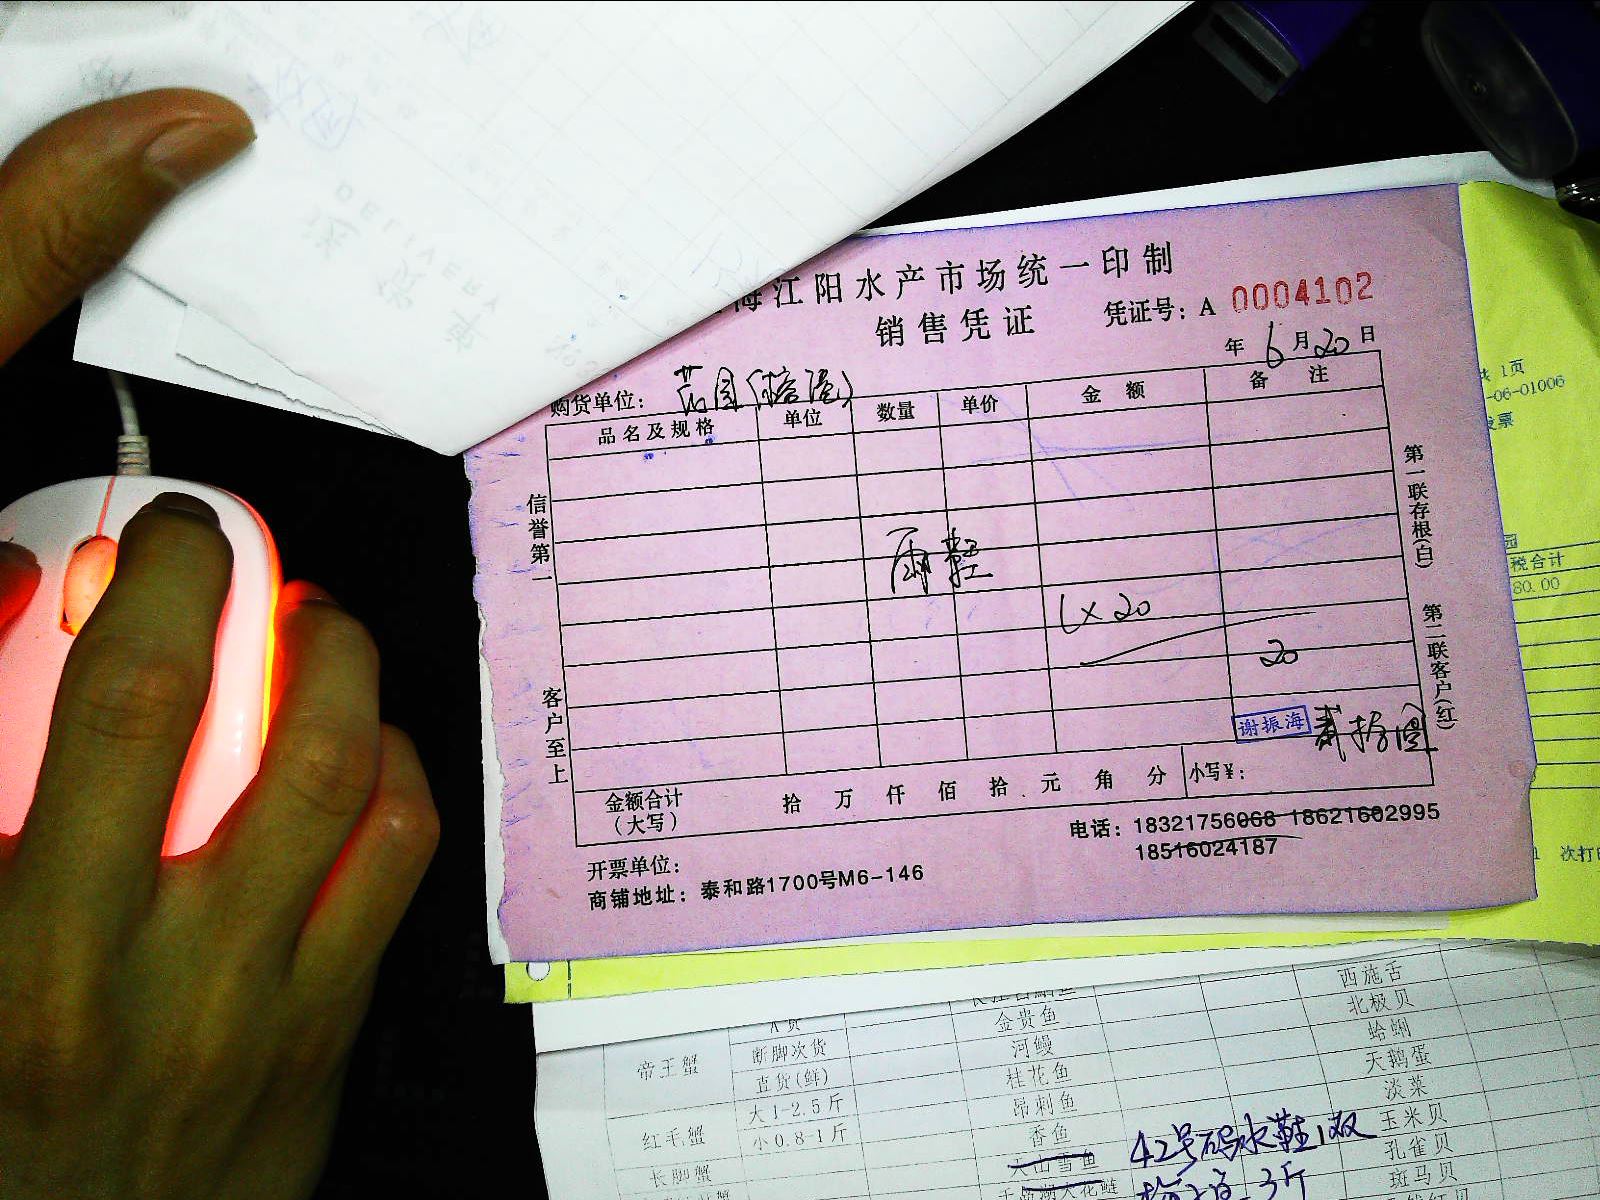 DELIVERY
送货单
海江阳水产市场统一印制
销售凭证
凭证号：A 0004102
年 6 月 20 日
购货单位：
品名及规格 单位 数量 单价 金额 备注
信誉第一
客户至上
雨鞋
1×20
20
谢振海
贰拾圆
第一联存根(白)
第二联客户(红)
金额合计
（大写）
拾 万 仟 佰 拾 元 角 分 小写¥：
电话：18321756068 18621602995
18516024187
开票单位：
商铺地址：泰和路1700号M6-146
共 1页
-06-01006
发票
园
税合计
80.00
次打
西施舌
A货 金贵鱼 北极贝
帝王蟹 断脚次货 河鳗 蛤蜊
直货(鲜) 桂花鱼 天鹅蛋
大1-2.5斤 昂刺鱼 淡菜
红毛蟹 小0.8-1斤 香鱼 玉米贝
长脚蟹 天山雪鱼 孔雀贝
斑马贝
42号码水鞋1双
3斤